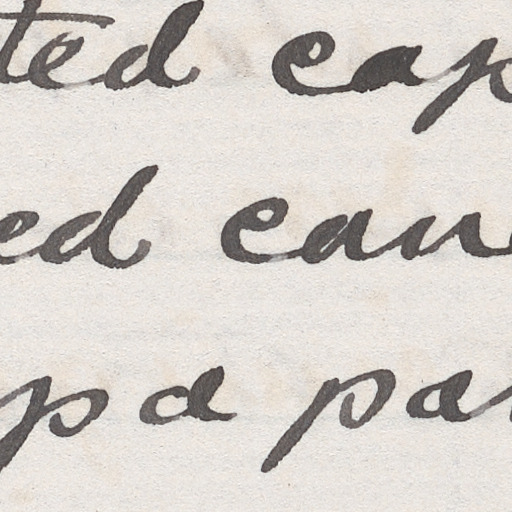 ted cap
ed can
p a par